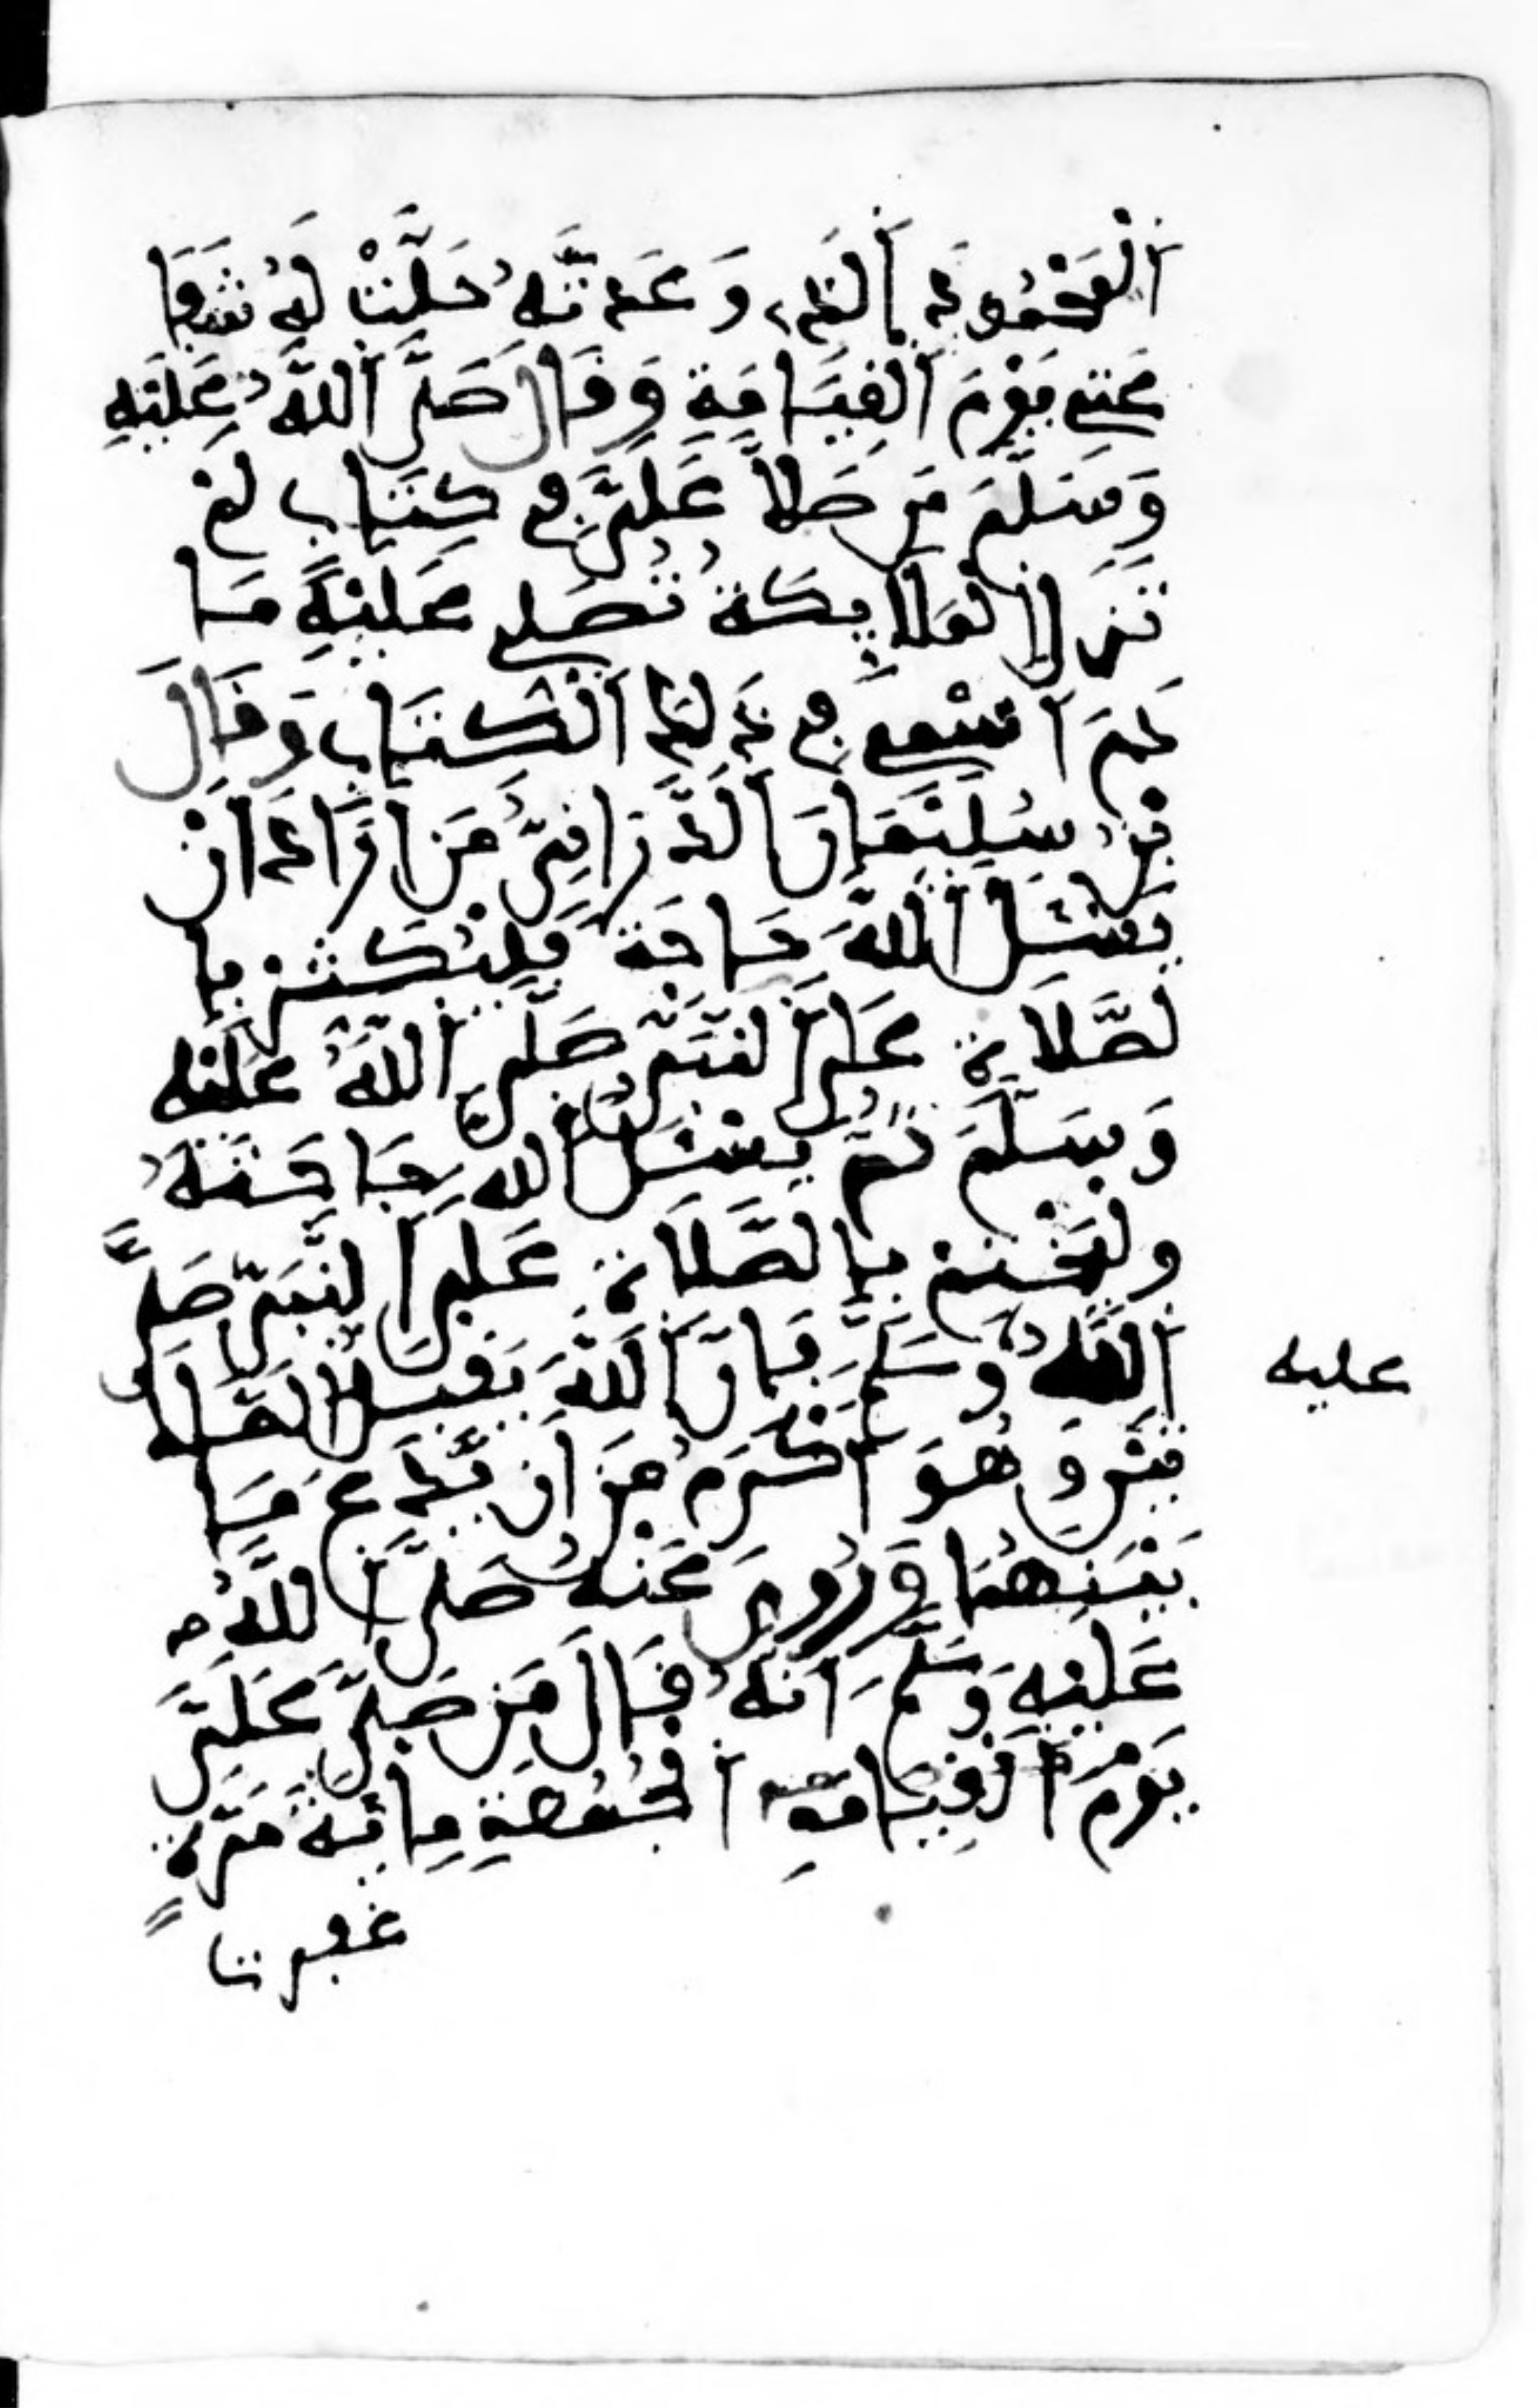 الْمَحْمُودَ الَّذِي وَعَدتَّهُ حَلَّتْ لَهُ شَفَا
عَتِي يَوْمَ الْقِيَامَةِ وَقَالَ صَلَّى اللَّهُ عَلَيْهِ
وَسَلَّمَ مَن صَلَّا عَلَيَّ فِي كِتَابٍ لَمْ
تَزَلِ الْمَلَايِكَةُ تُصَلِّي عَلَيْهِ مَا
دَمَ اسْمِي فِي ذَلِكَ الْكِتَابِ وَقَالَ
بُو سُلَيْمَانَ الدَّرَانِيُّ مَنَ ارَادَ انْ
يَسْئَلَ اللَّهَ حَاجَةً فَلْيُكْثِرْ بِا
لصَّلَاةِ عَلَى النَّبِيِّ صَلَّى اللَّهُ عَلَيْهِ
وَسَلَّمَ ثُمَّ يَسْئَلُ اللهَ حَاجَتَهُ
وليَخْتِمْ بِالصَّلَاةِ عَلَى النَّبِيِّ صَلَّى
اللَّهُ وَسَلَّمَ فَإِنَّ اللَّهَ يَقْبَلُ الصَّلَا
تَيْنِ وَهُوَ أَكْرَمُ مِنَ ان يَّدَعَ مَا
بَيْنَهُمَا وَرُوِيَ عَنْهُ صَلَّى اللَّهُ
عَلَيْهِ وَسَلَّمَ أَنَّهُ قَالَ مَن صَلَّى عَلَيَّ
يَوْمَ الْقِيَامَةِ الْجُمُعَةِ مِائَةَ مَرَّةٍ
غفرت
عليه